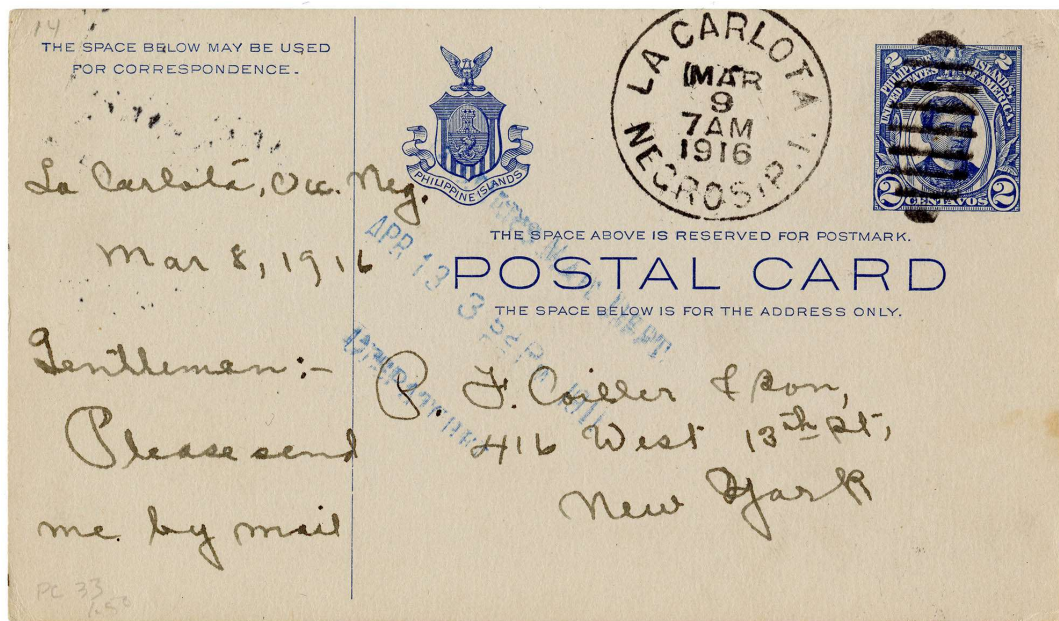 14
THE SPACE BELOW MAY BE USED
FOR CORRESPONDENCE.
La Carlota, Occ. Neg.
Mar 8, 1916
Gentlemen:-
Please send
me by mail
PC 33
PHILIPPINE ISLANDS
LA CARLOTA
MAR
9
7AM
1916
NEGROS, P.I.
2 2
PHILIPPINE ISLANDS.
UNITED STATES OF AMERICA.
2 CENTAVOS 2
THE SPACE ABOVE IS RESERVED FOR POSTMARK.
POSTAL CARD
THE SPACE BELOW IS FOR THE ADDRESS ONLY.
APR 13 3
P. F. Coiller & Son,
416 West 13th St,
New York